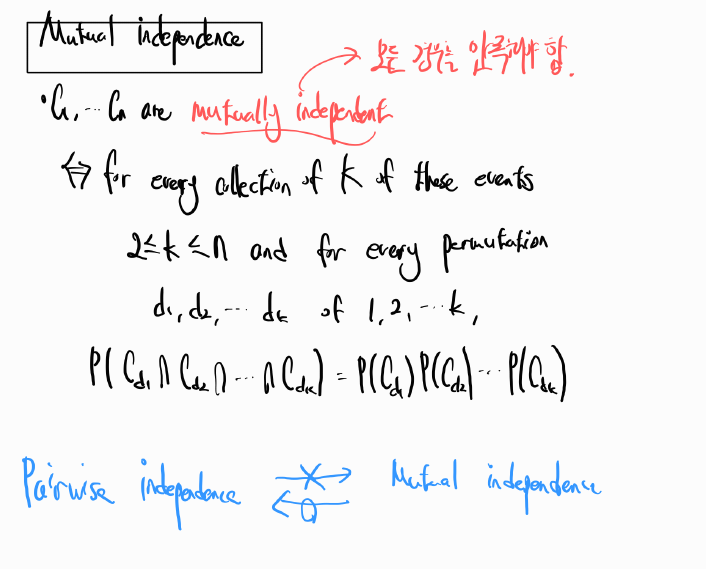 Mutual independence
모든 경우를 만족해야 함.
·C₁, ··· Cₙ are mutually independent
⇔ for every collection of k of these events
2≤k≤n and for every permutation
d₁, d₂, ··· dₖ of 1, 2, ··· k,
P(C_d₁ ∩ C_d₂ ∩ ··· ∩ C_dₖ) = P(C_d₁)P(C_d₂) ··· P(C_dₖ)
Pairwise independence ⇄ Mutual independence